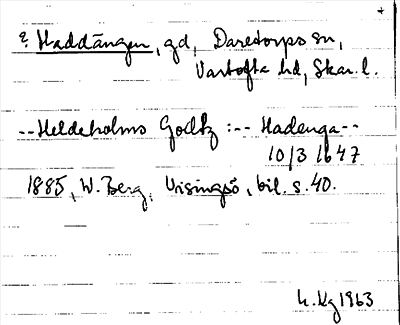 ? Haddängen, gd, Daretorps sn,
Vartofta hd, Skar. l.
-- Heldeholms Godtz :-- Hadenga --
10/3 1647
1885, W. Berg, Visingsö, bil. s. 40.
h. Kg 1963